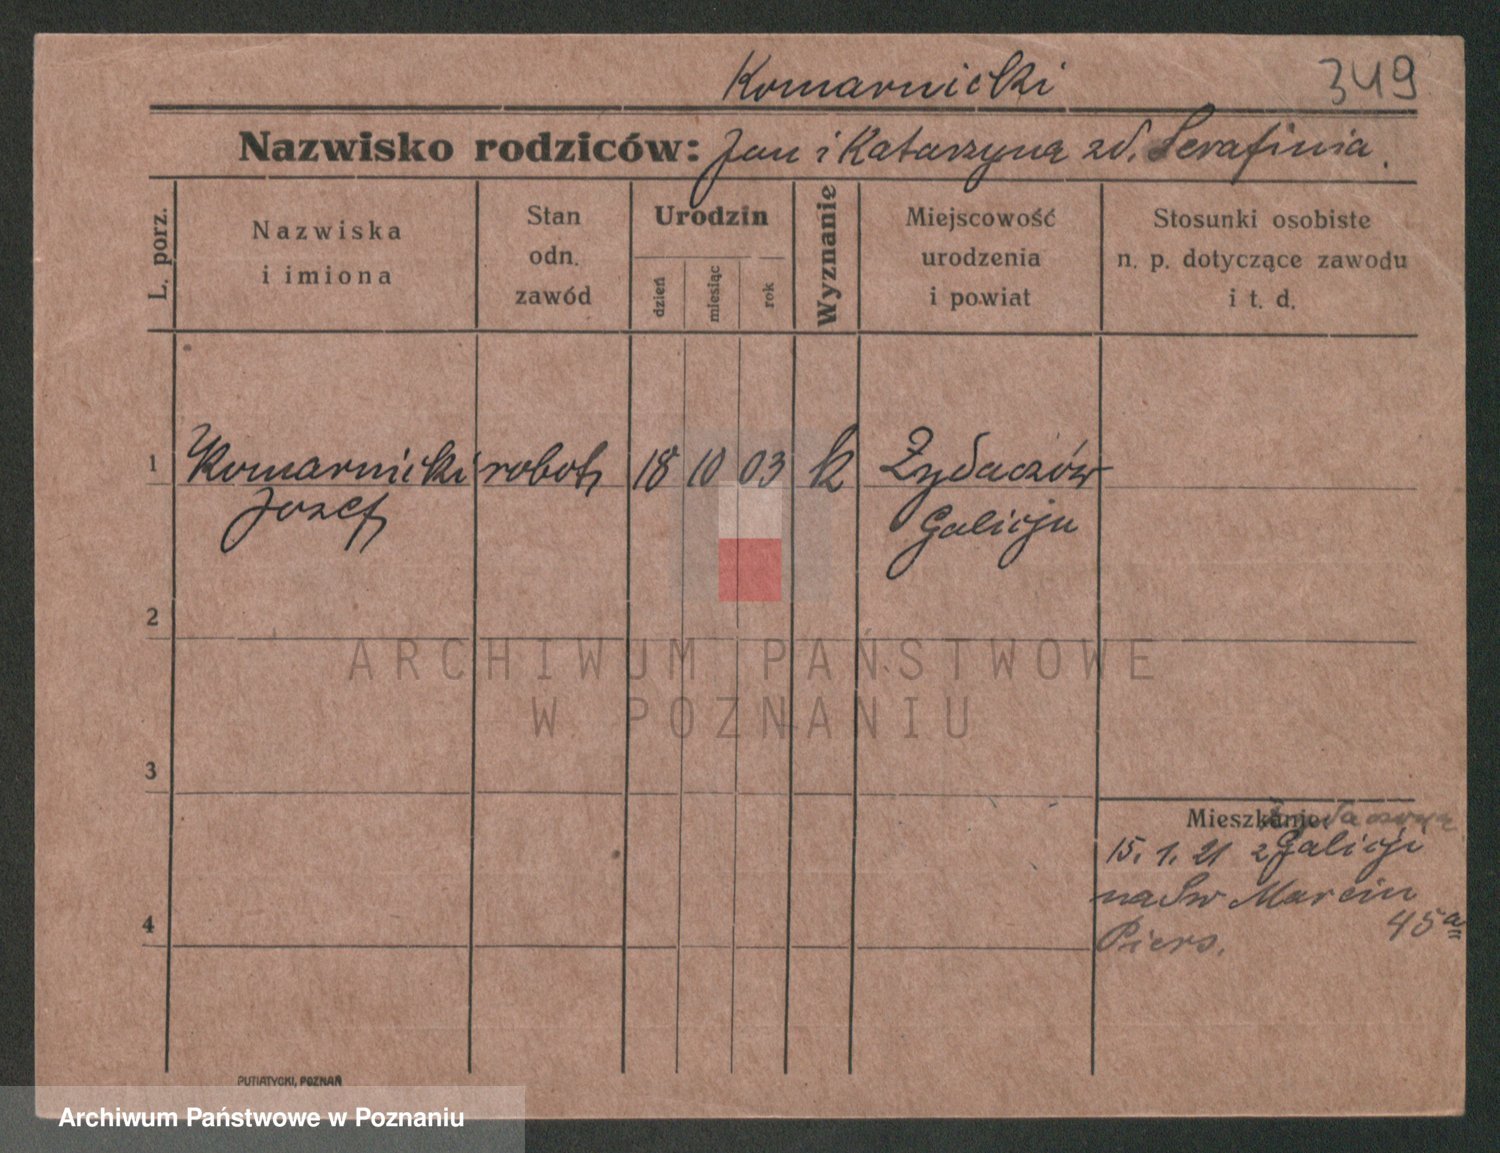 Komarnicki
349
Nazwisko rodziców: Jan i Katarzyna zd. Serafinia.
L. porz.
Nazwiska
i imiona
Stan
odn.
zawód
Urodzin
dzień
miesiąc
rok
Wyznanie
Miejscowość
urodzenia
i powiat
Stosunki osobiste
n. p. dotyczące zawodu
i t. d.
1 Komarnicki robotn 18 10 03 k Żydaczów
Jozef Galicja
2
ARCHIWUM PAŃSTWOWE
W POZNANIU
3
Mieszkanie:
15. 1. 21 z Galicji
na Św Marcin
45a
Piers.
4
PUTIATYCKI, POZNAŃ
Archiwum Państwowe w Poznaniu